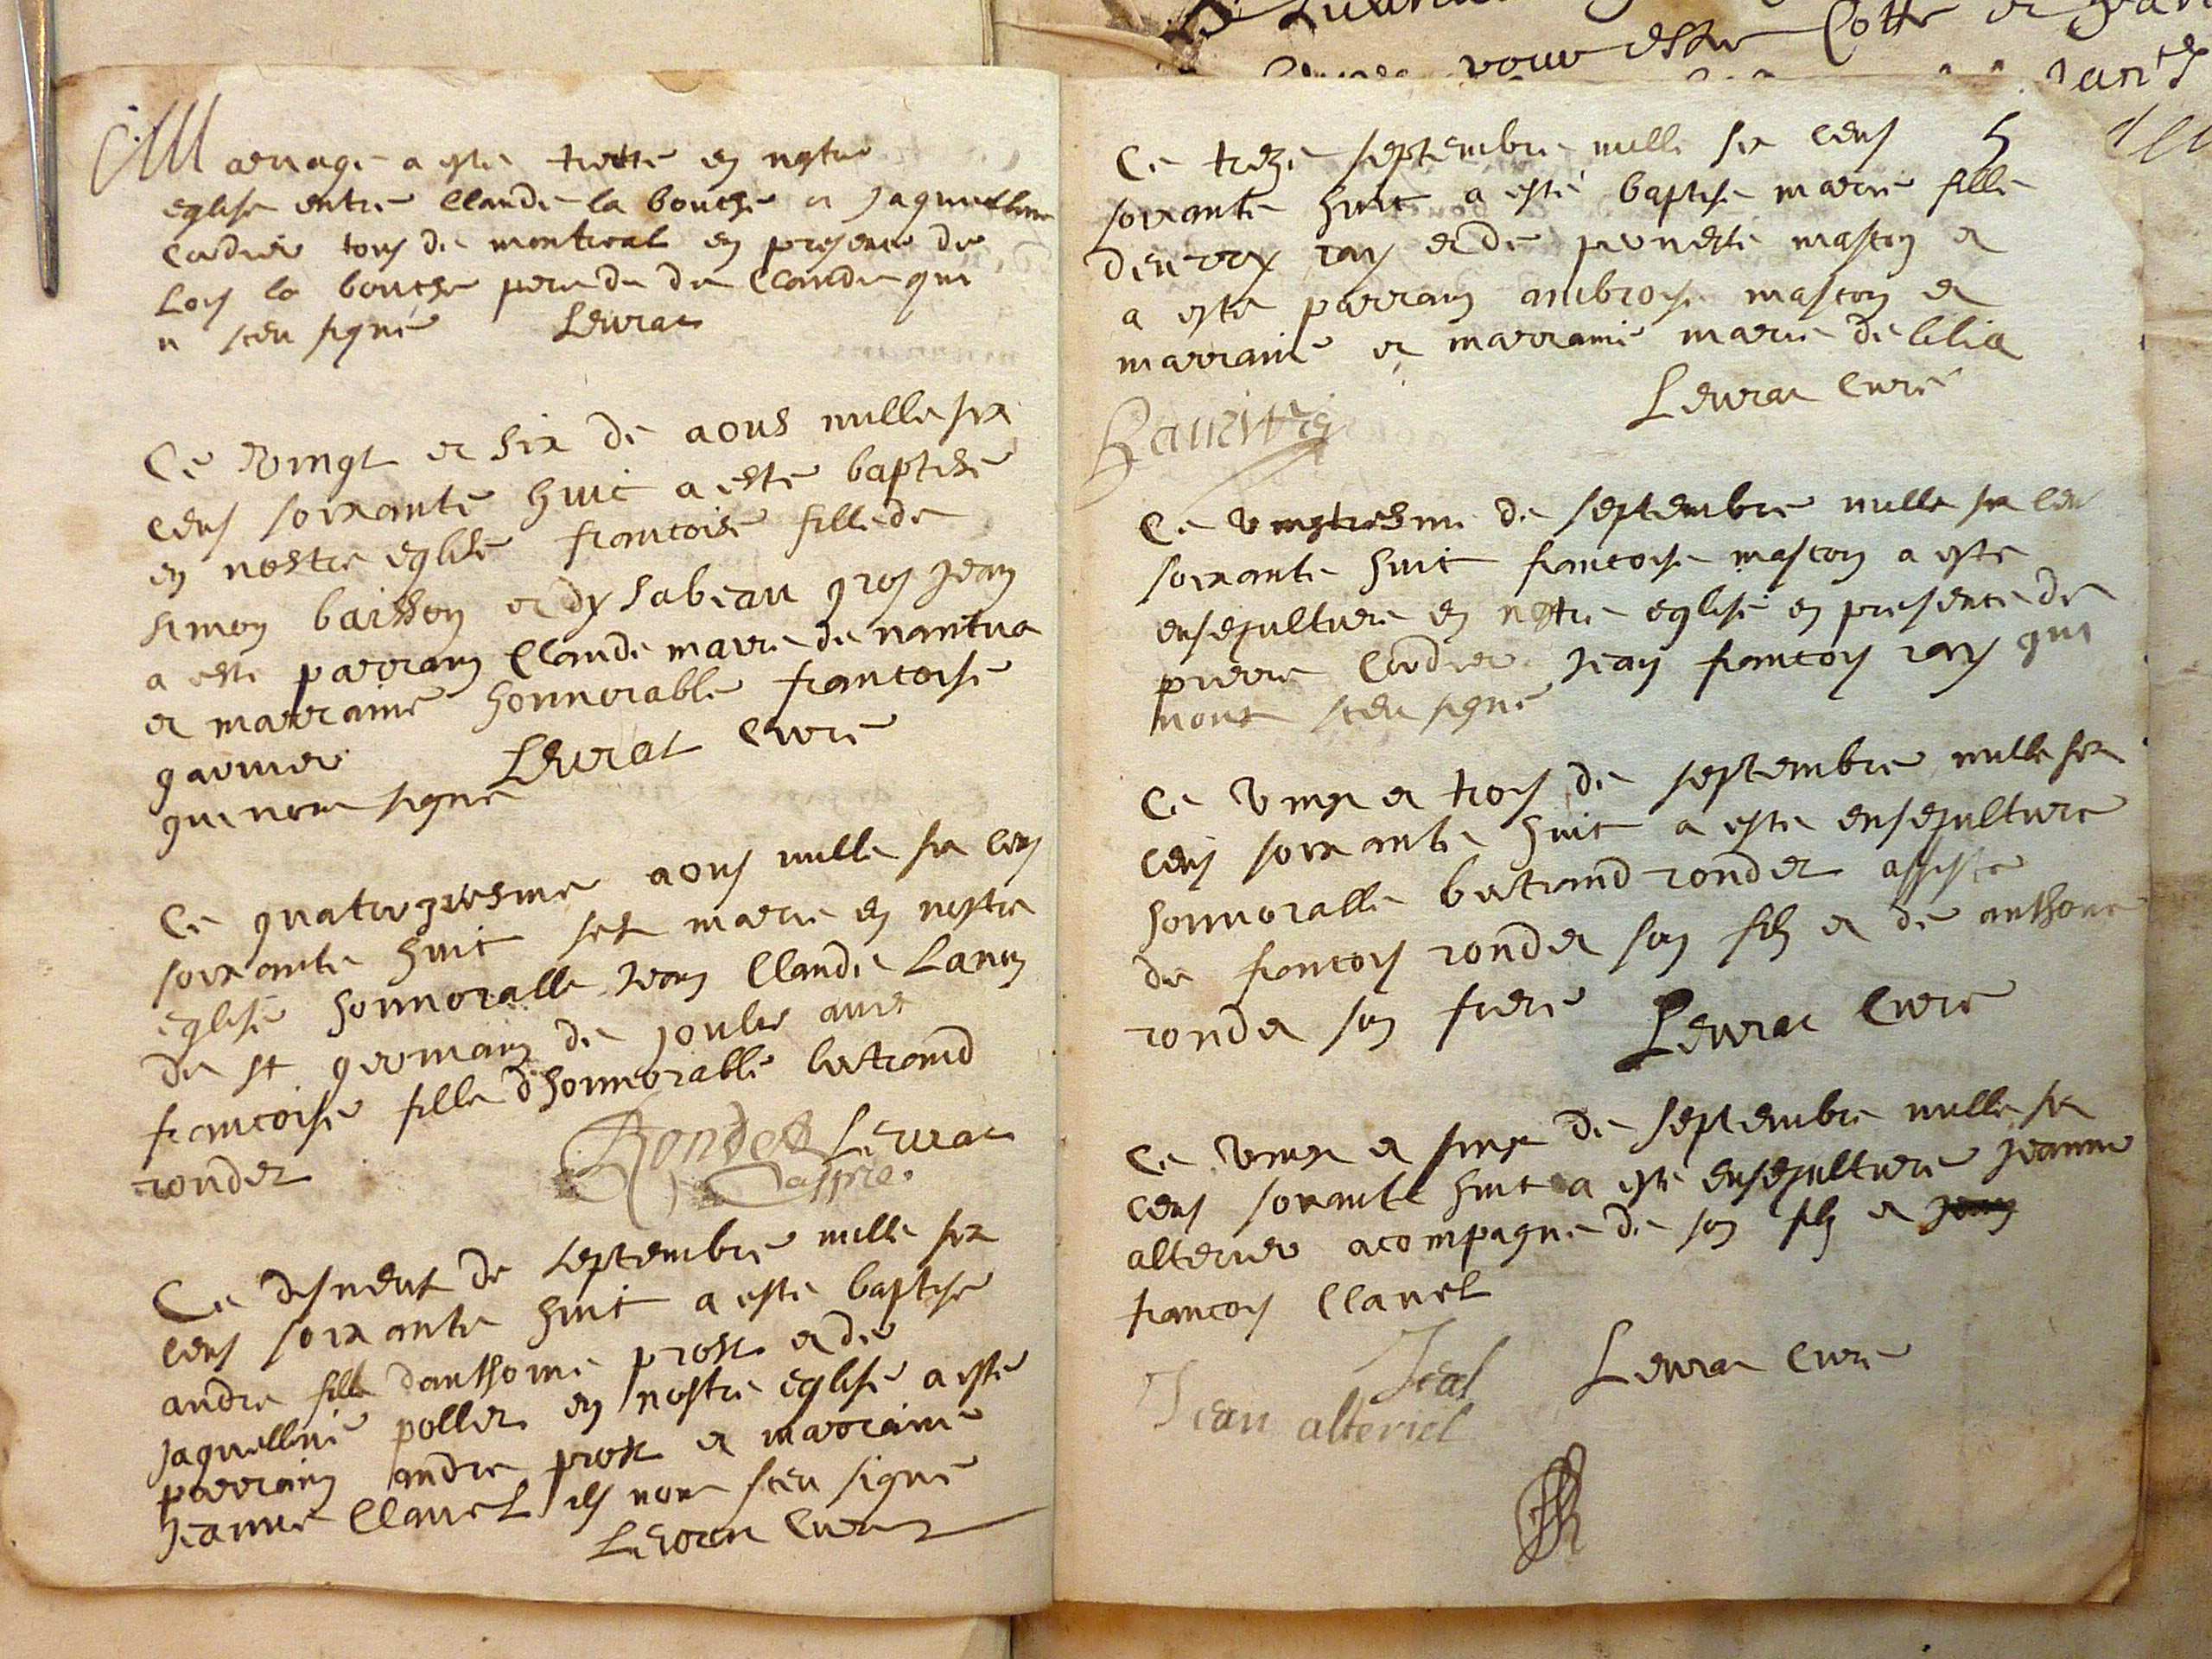 Mariage a esté tretté en nostre
eglise entre Claude la bouche et Jaquelline
Cordier tous de montreal en presence de
Loys la bouche pere du dit Claude qui
n sceu signé Leurat
Ce vingt et six de aous mille six
cens soixante huit a esté baptisé
en nostre eglise francoise fille de
simon baisson et dysabeau gros Jean
a esté parrain Claude marie de nantua
et marraine honnorable francoise
garnier Leurat Curé
qui nont signé
Ce quatorziesme aous mille six cens
soixante huit sest marié en nostre
eglise honnoralle Jean Claude Lanin
de st germain de joulx avec
francoise fille d'honnorable bertrand
rondet
Rondet Leurat
Ce disneuf de septembre mille six
cens soixante huit a esté baptisé
andre fille danthoine prost et de
Jaquelline pollet en nostre eglise a esté
parrain andre prost et marraine
Jeanne Clavel ils nont sceu signé
Leurat Curé
Ce treze septembre mille six cens 5
soixante huit a esté baptisé marie fille
de ray et de pernette mascon et
a esté parrain ambroise mascon et
marraine et marraine marie de lilia
Leurat Curé
Ce vingtiesme de septembre mille six cen
soixante huit francoise mascon a esté
ensepulturé en nostre eglise en presence de
pierre Cordier Jean francoys ray qui
nont sceu signé
Ce vingt et trois de septembre mille six
cens soixante huit a esté ensepulturé
honnoralle bertrand rondet assisté
de francois rondet son filz et de anthoine
rondet son frere Leurat Curé
Ce vingt et sinq de septembre mille six
cens soixante huit a esté ensepulturé Jeanne
alterier acompagné de son filz et Jean
francois Clavel
Leurat Curé
Jean alteriet